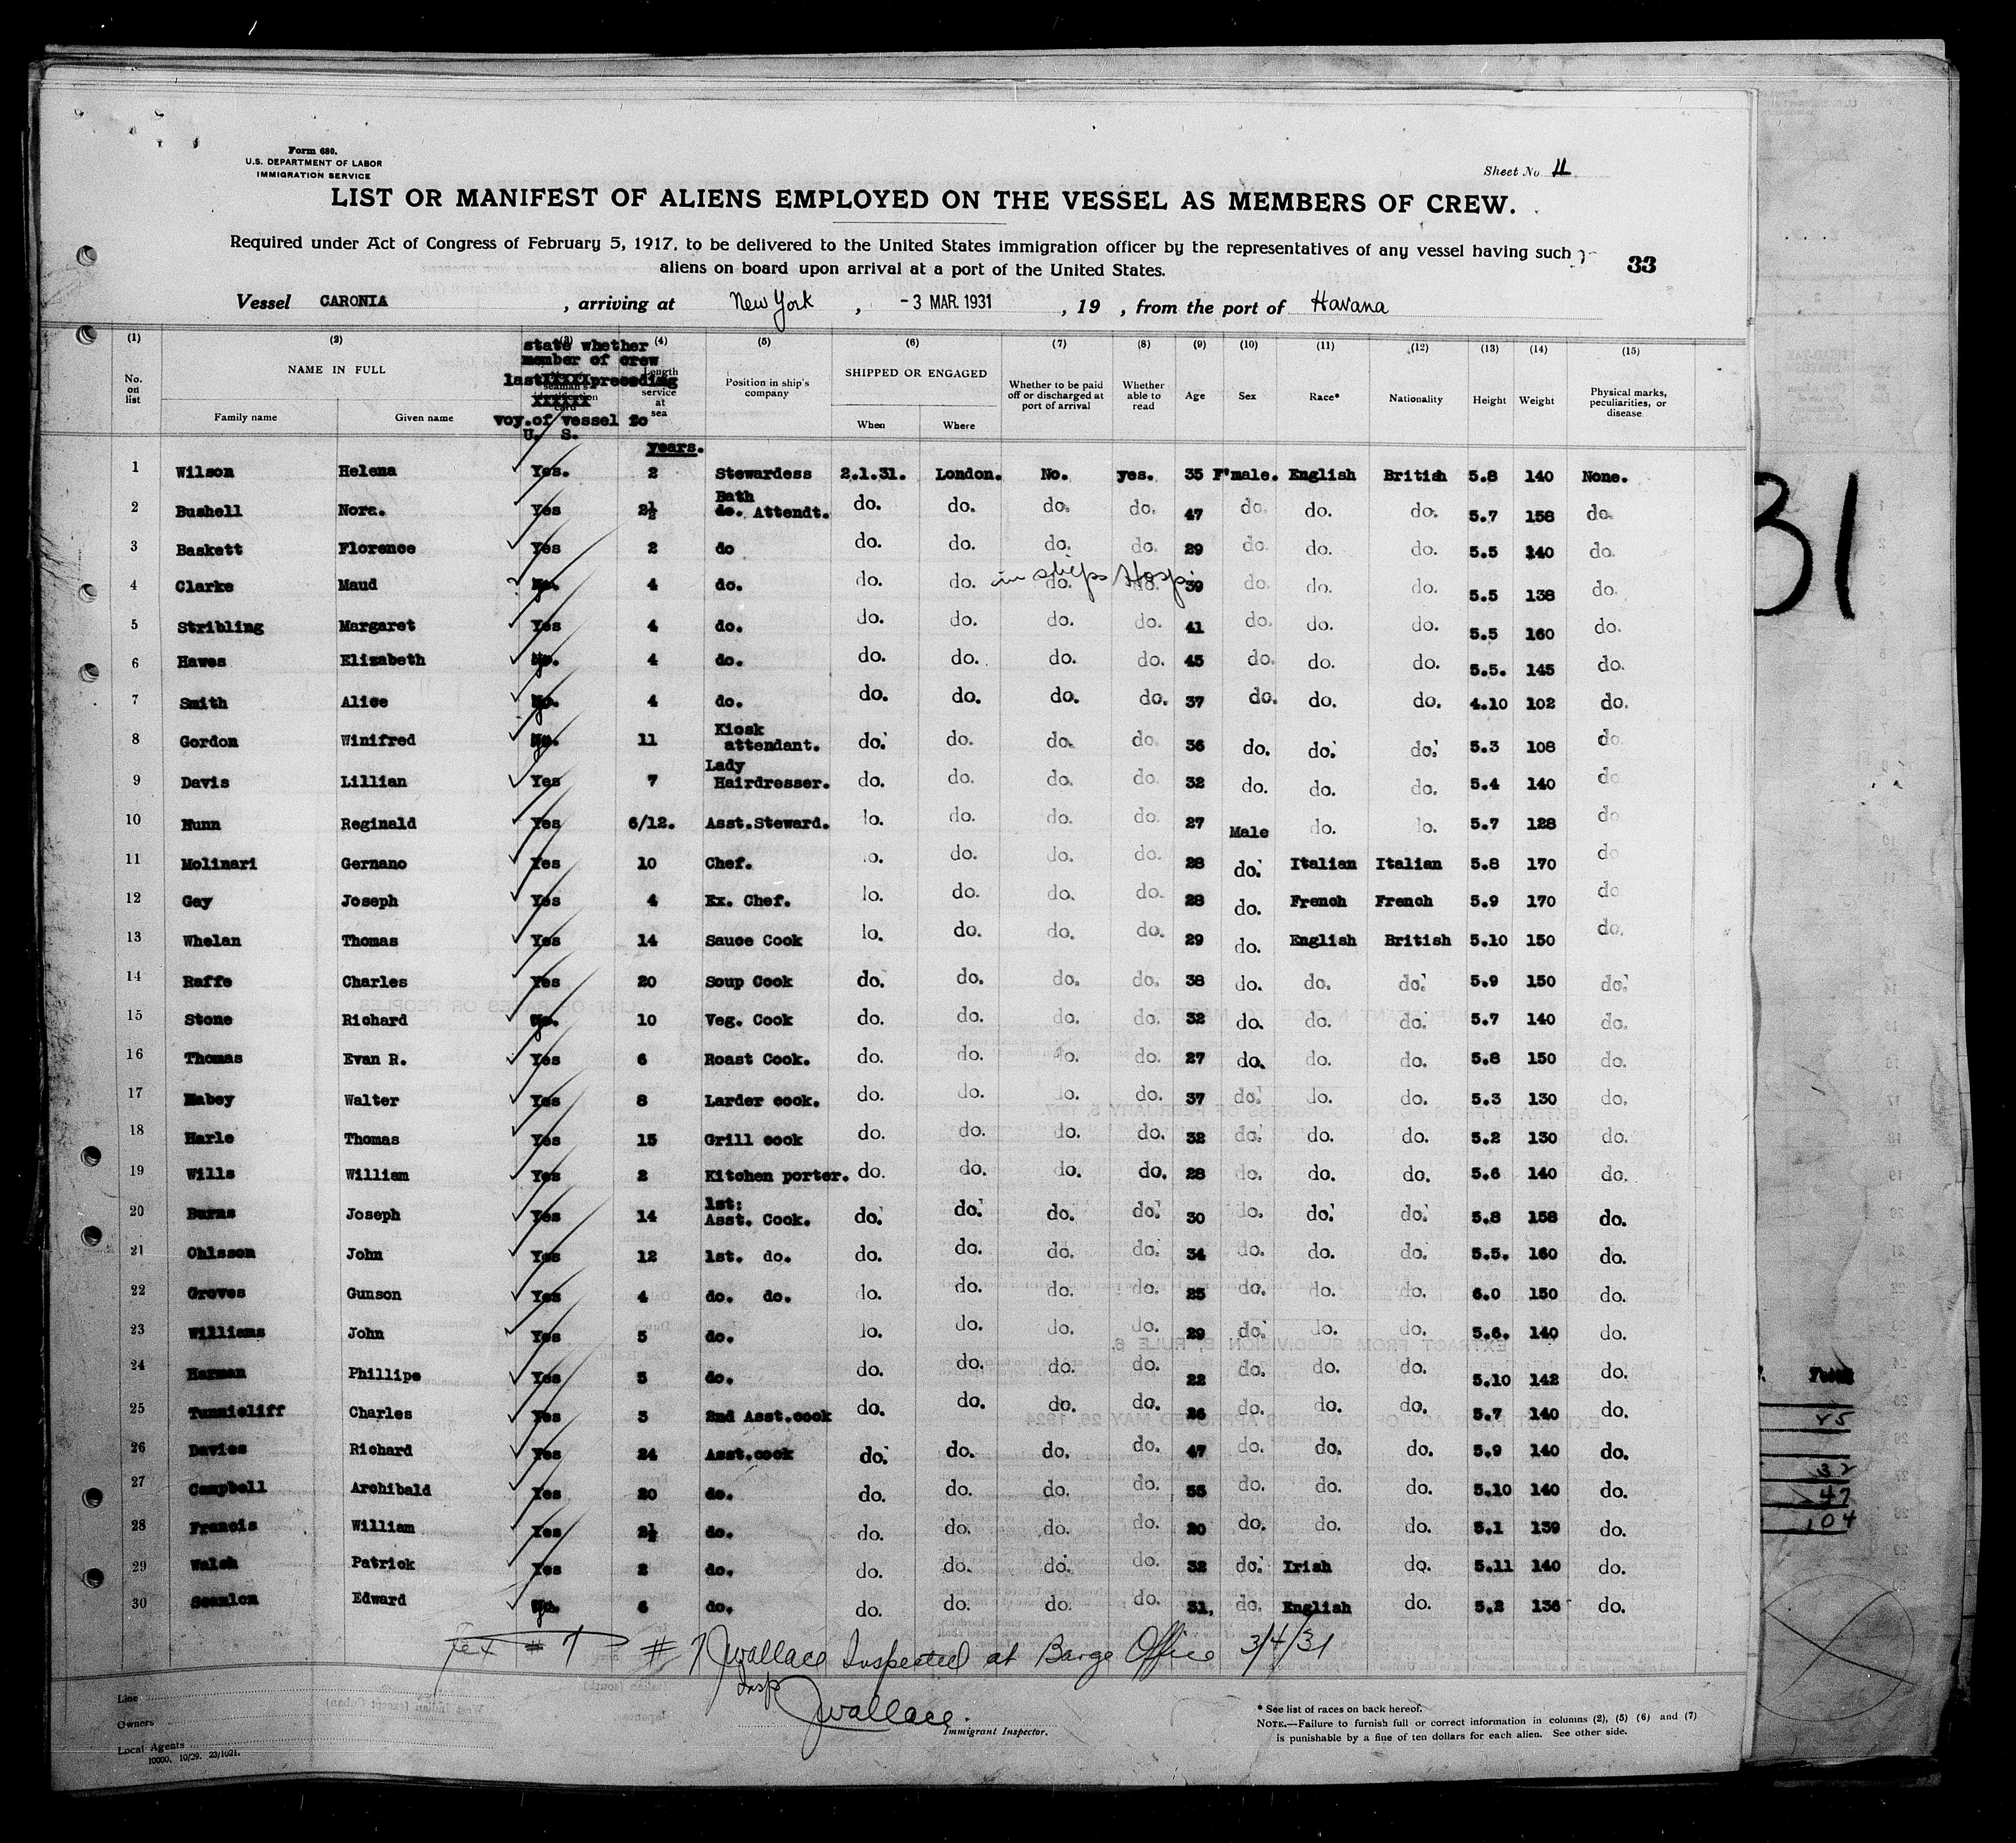 Form 680.
U.S. DEPARTMENT OF LABOR
IMMIGRATION SERVICE
Sheet No 11
LIST OR MANIFEST OF ALIENS EMPLOYED ON THE VESSEL AS MEMBERS OF CREW.
Required under Act of Congress of February 5, 1917, to be delivered to the United States immigration officer by the representatives of any vessel having such
aliens on board upon arrival at a port of the United States.
33
Vessel CARONIA , arriving at New York , -3 MAR. 1931 , 19 , from the port of Havana
(1) (2) (3) (4) (5) (6) (7) (8) (9) (10) (11) (12) (13) (14) (15)
No. on list
NAME IN FULL
Family name Given name
state whether
member of crew
last XXXXX preceding
XXXXXX
voy. of vessel to
U. S.
Length service at sea
years.
Position in ship's company
SHIPPED OR ENGAGED
When Where
Whether to be paid off or discharged at port of arrival
Whether able to read
Age Sex Race* Nationality Height Weight
Physical marks, peculiarities, or disease
1 Wilson Helena Yes. 2 Stewardess 2.1.31. London. No. yes. 35 F'male. English British 5.8 140 None.
2 Bushell Nora. Yes 2½ Bath do. Attendt. do. do. do. do. 47 do. do. do. 5.7 158 do.
3 Baskett Florence Yes 2 do do. do. do. do. 29 do. do. do. 5.5 140 do.
4 Clarke Maud No. 4 do. do. do. in ships Hosp. do. do. 39 do. do. do. 5.5 138 do.
5 Stribling Margaret Yes 4 do. do. do. do. do. 41 do. do. do. 5.5 160 do.
6 Hawes Elizabeth No. 4 do. do. do. do. do. 45 do. do. do. 5.5. 145 do.
7 Smith Alice No. 4 do. do. do. do. do. 37 do. do. do. 4.10 102 do.
8 Gordon Winifred No. 11 Kiosk attendant. do. do. do. do. 36 do. do. do. 5.3 108 do.
9 Davis Lillian Yes 7 Lady Hairdresser. do. do. do. do. 32 do. do. do. 5.4 140 do.
10 Nunn Reginald Yes 6/12. Asst.Steward. do. do. do. do. 27 Male do. do. 5.7 128 do.
11 Molinari Gernano Yes 10 Chef. do. do. do. do. 28 do. Italian Italian 5.8 170 do.
12 Gay Joseph Yes 4 Ex. Chef. do. do. do. do. 28 do. French French 5.9 170 do.
13 Whelan Thomas Yes 14 Sauce Cook do. do. do. do. 29 do. English British 5.10 150 do.
14 Raffe Charles Yes 20 Soup Cook do. do. do. do. 38 do. do. do. 5.9 150 do.
15 Stone Richard No. 10 Veg. Cook do. do. do. do. 32 do. do. do. 5.7 140 do.
16 Thomas Evan R. Yes 6 Roast Cook. do. do. do. do. 27 do. do. do. 5.8 150 do.
17 Mabey Walter Yes 8 Larder cook. do. do. do. do. 37 do. do. do. 5.3 130 do.
18 Harle Thomas Yes 15 Grill cook do. do. do. do. 32 do. do. do. 5.2 130 do.
19 Wills William Yes 2 Kitchen porter. do. do. do. do. 28 do. do. do. 5.6 140 do.
20 Burns Joseph Yes 14 1st: Asst. Cook. do. do. do. do. 30 do. do. do. 5.8 158 do.
21 Ohlsson John Yes 12 1st. do. do. do. do. do. 34 do. do. do. 5.5. 160 do.
22 Groves Gunson Yes 4 do. do. do. do. do. do. 25 do. do. do. 6.0 150 do.
23 Williams John Yes 5 do. do. do. do. do. 29 do. do. do. 5.6. 140 do.
24 Harman Phillips Yes 5 do. do. do. do. do. 22 do. do. do. 5.10 142 do.
25 Tunnicliff Charles Yes 3 2nd Asst.cook do. do. do. do. 26 do. do. do. 5.7 140 do.
26 Davies Richard Yes 24 Asst.cook do. do. do. do. 47 do. do. do. 5.9 140 do.
27 Campbell Archibald Yes 20 do. do. do. do. do. 55 do. do. do. 5.10 140 do.
28 Francis William Yes 2½ do. do. do. do. do. 20 do. do. do. 5.1 139 do.
29 Walsh Patrick Yes 2 do. do. do. do. do. 32 do. Irish do. 5.11 140 do.
30 Scanlon Edward No. 6 do. do. do. do. do. 31. do. English do. 5.2 136 do.
# 7 JWallace Inspected at Barge Office 3/4/31
Insp
JWallace.
Immigrant Inspector.
Line
Owners
Local Agents
10000. 10/29. 23/1021.
* See list of races on back hereof.
NOTE.—Failure to furnish full or correct information in columns (2), (5) (6) and (7)
is punishable by a fine of ten dollars for each alien. See other side.
31
45
32
47
104